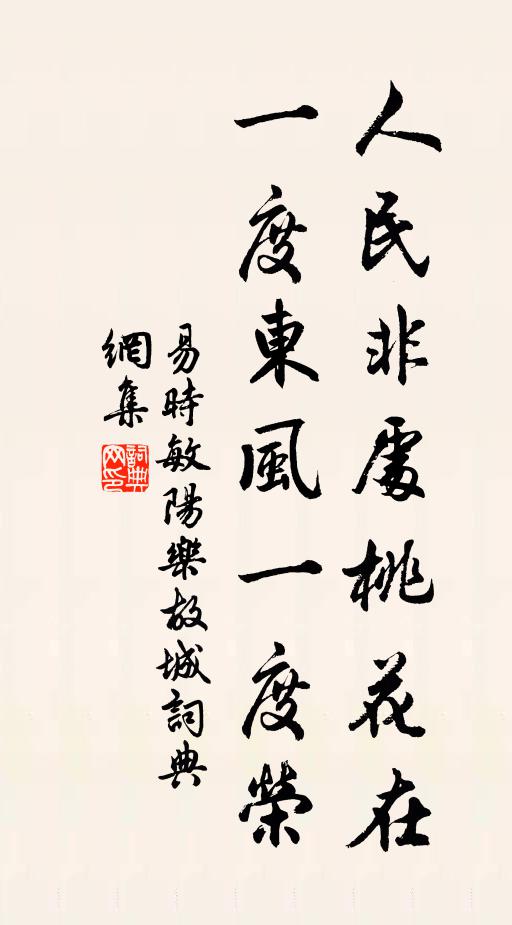 人民非處桃花在
一度東風一度榮
易時敏陽樂故城詞典
網集
詞典
网印